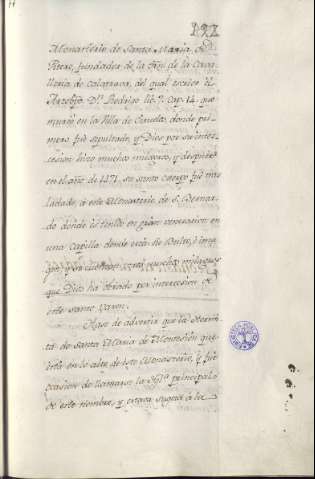 Monasterio de Santa Maria de
Fitero, fundador de la Orden de la Cava-
lleria de Calatrava, del qual escrive el
Arzobpo. Dn. Rodrigo lib. 7. cap. 14. que
murio en la Villa de Ciruelos, donde pri-
mero fue sepultado, y Dios por su inter-
cesion hizo muchos milagros, y despues
en el año de 1471. su santo cuerpo fue tras-
ladado, á este Monasterio de S. Bernar-
do donde es tenido en gran veneracion en
una capilla donde está su Bulto, ó ima-
gen, y se cuentan muchos milagros
que Dios ha obrado por intercesion de
este santo Varon.
Hase de advertir que la Hermi-
ta de Santa Maria de Montesion que
está en lo alto de este Monasterio, y fue
ocasion de llamarse la Ygla. principal
de este nombre, y estava sugeta á la